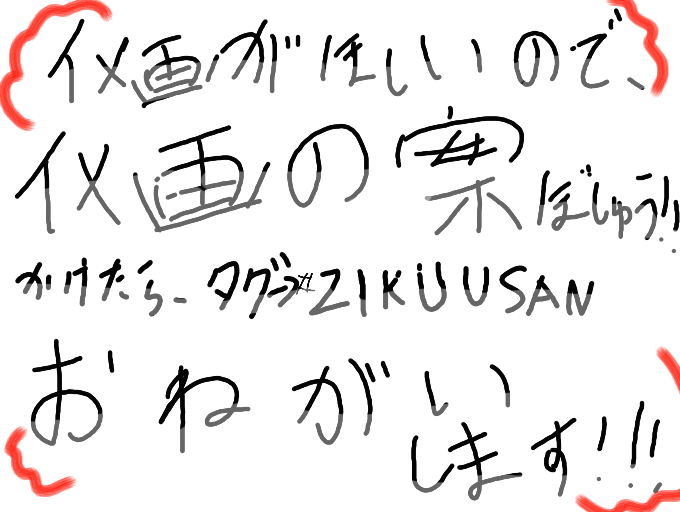 仪画がほしいので、
仪画の案ぼしゅう!!
かけたら、タグで#ZIKUUSAN
おねがい
します!!!